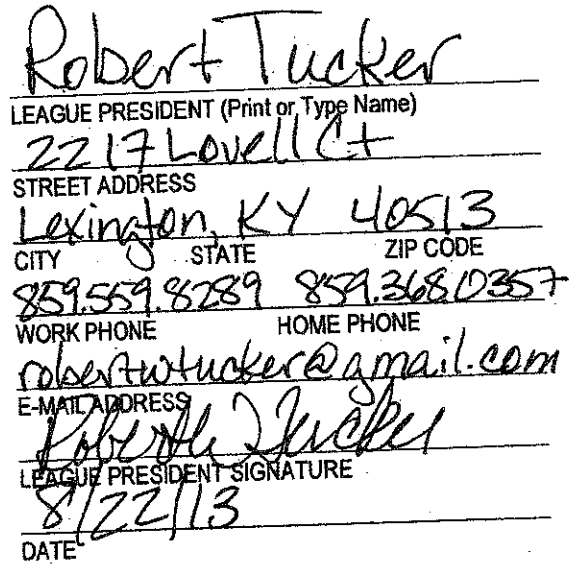 Robert Tucker
LEAGUE PRESIDENT (Print or Type Name)
2217 Lovell Ct
STREET ADDRESS
Lexington, KY 40513
CITY STATE ZIP CODE
859.559.8289 859.368.0357
WORK PHONE HOME PHONE
robertwtucker@gmail.com
E-MAIL ADDRESS
Robert Tucker
LEAGUE PRESIDENT SIGNATURE
8/22/13
DATE